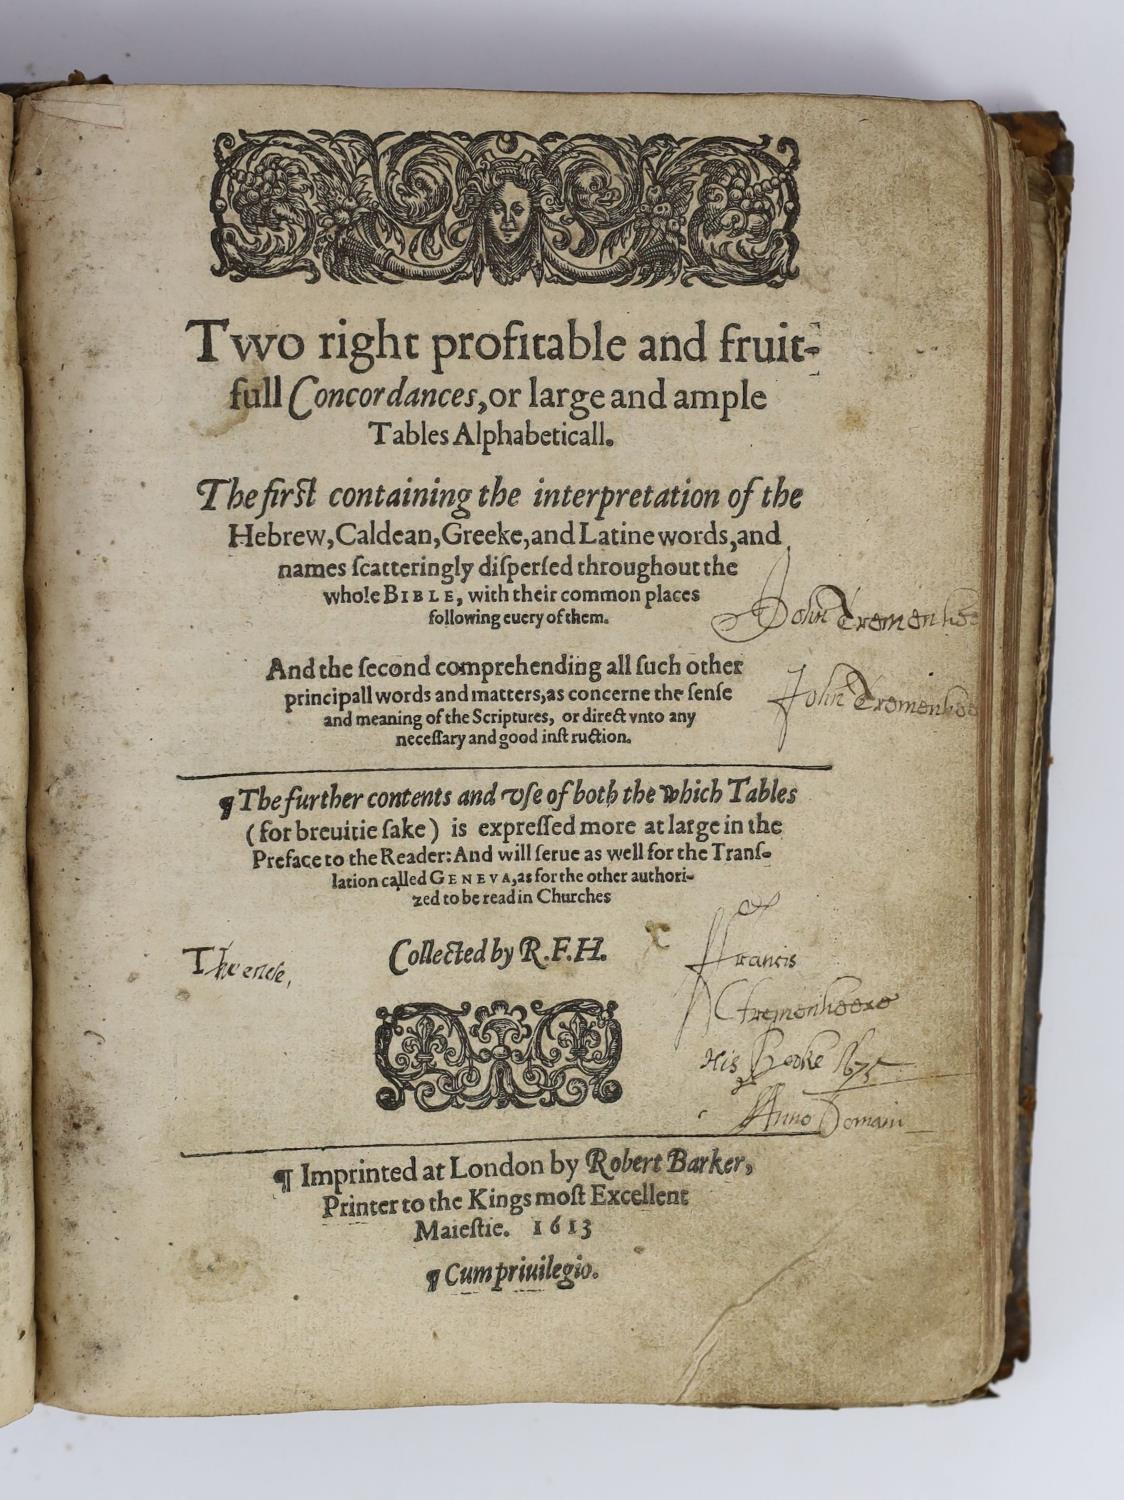 Two right profitable and fruit-
full Concordances, or large and ample
Tables Alphabeticall.
The first containing the interpretation of the
Hebrew, Caldean, Greeke, and Latine words, and
names ſcatteringly diſperſed throughout the
whole BIBLE, with their common places
following euery of them.
John Tremenhee
And the ſecond comprehending all ſuch other
principall words and matters, as concerne the ſenſe
and meaning of the Scriptures, or direct vnto any
neceſſary and good inſtruction.
John Tremenhee
¶ The further contents and vſe of both the which Tables
(for breuitie ſake) is expreſſed more at large in the
Preface to the Reader: And will ſerue as well for the Tranſ-
lation called GENEVA, as for the other authori-
zed to be read in Churches
Collected by R.F.H.
Francis
Tremenheere
His Booke 1675
Anno Domini
¶ Imprinted at London by Robert Barker,
Printer to the Kings moſt Excellent
Maieſtie. 1613
¶ Cum priuilegio.